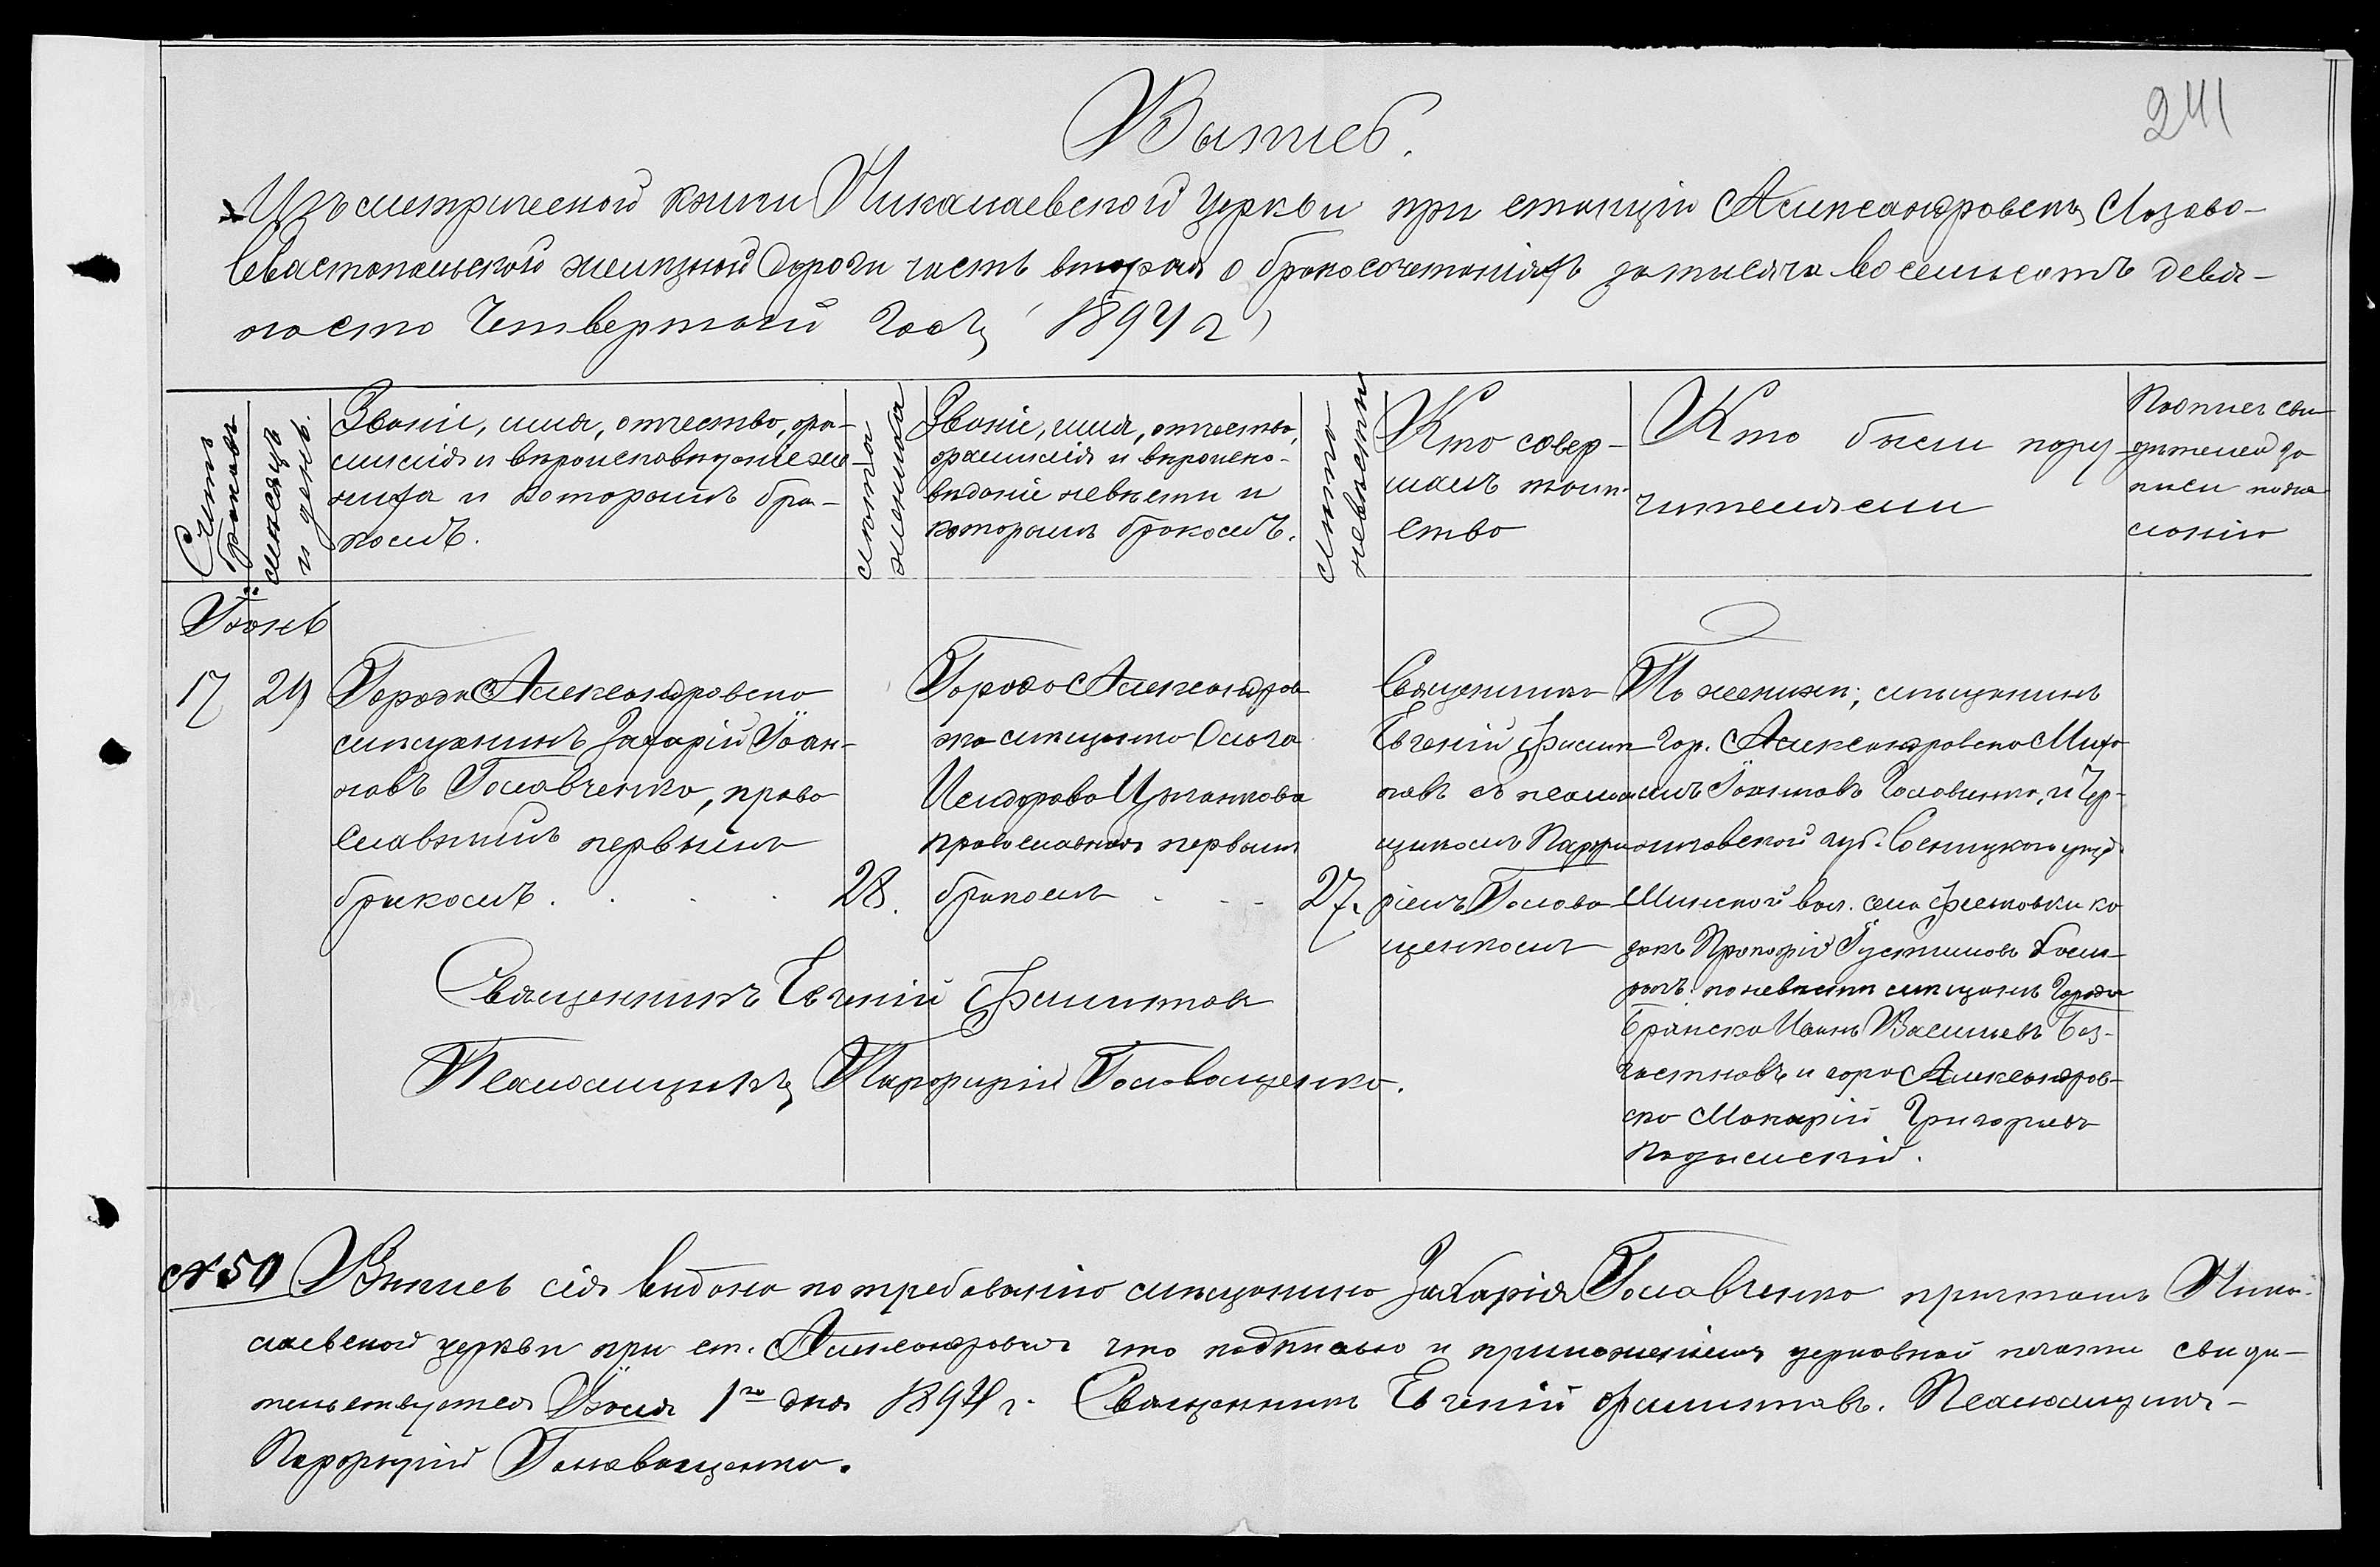 241
Выпись.
Изъ метрической книги Николаевской церкви при станціи Александровскъ Лозово-
Севастопольской желѣзной дороги часть вторая о бракосочетаніяхъ за тысяча восемьсотъ девя-
носто четвертый годъ 1894 г)
Счетъ браковъ
мѣсяцъ и день.
Званіе, имя, отчество, фа-
милія и вѣроисповѣданіе же-
ниха и которымъ бра-
комъ.
лѣта жениха
Званіе, имя, отчество,
фамилія и вѣроиспо-
вѣданіе невѣсты и
которымъ бракомъ.
лѣта невѣсты
Кто совер-
шалъ таин-
ство
Кто были пору-
чителями
Подпись сви-
дѣтелей за
писи по же
ланію
Іюнь
17
29
Города Александровска
мѣщанинъ Захарій Іоан-
новъ Головченко, право
славный первымъ
бракомъ. . . .
28.
Города Александров
ска мѣщанка Ольга
Исидорова
православная первымъ
бракомъ . . -
27.
Священникъ
Евгеній Филип-
повъ съ псалом
щикомъ Парфи
ріемъ Голова
щенкомъ
По женихѣ; мѣщанинъ
гор. Александровска Миха
илъ Іоанновъ Головченко, и Чер-
ниговской губ. Сосницкаго уѣзд.
Минской вол. села ко
закъ Прокофій Іустиновъ
по невѣстѣ мѣщанинъ города
Брянска Иванъ Васильевъ Без-
частновъ и гора Александров-
ска Макарій Григорьевъ
Подымскій.
Священникъ Евгеній Филиппов
Псаломщикъ Парфирій Головащенко.
№ 50 Выпись сія выдана по требованію мѣщанина Захарія Головченко причтомъ Нико-
лаевской церкви при ст. Александровскъ что подписью и приложеніемъ церковной печати свидѣ-
тельствуется Іюля 1го дня 1894 г. Священникъ Евгеній Филипповъ. Псаломщикъ-
Парфирій Головащенко.